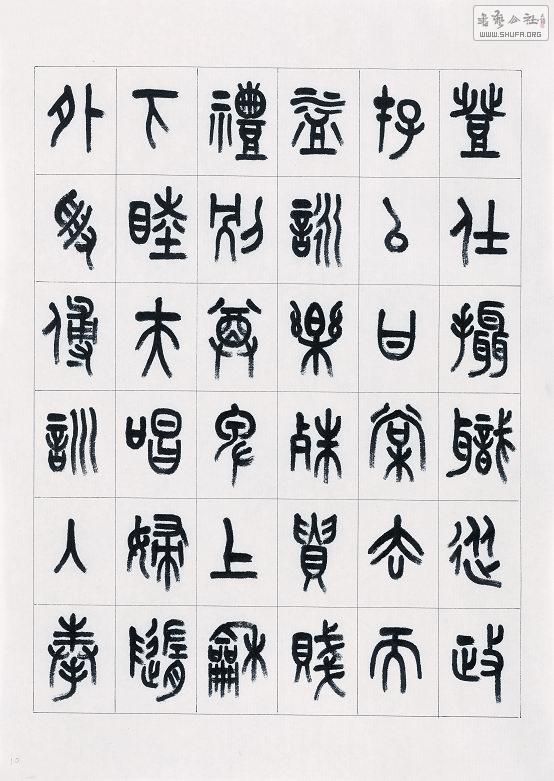 登仕攝職從政
存以甘棠去而
益詠樂殊貴賤
禮別尊卑上和
下睦夫唱婦隨
外受傅訓入奉
书艺公社
WWW.SHUFA.ORG
10